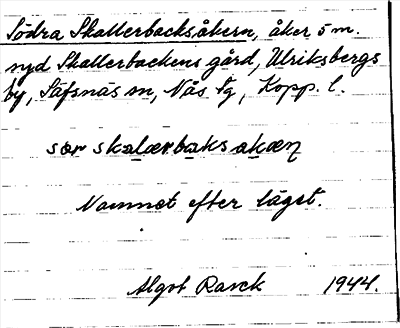 Södra Skallerbacksåkern, åker 5 m.
nyd Skallerbackens gård, Ulriksbergs
by, Säfsnäs sn, Nås tg, Kopp. l.
sør skalærbaksakæṇ
Namnet efter läget.
Algot Ranck 1944.